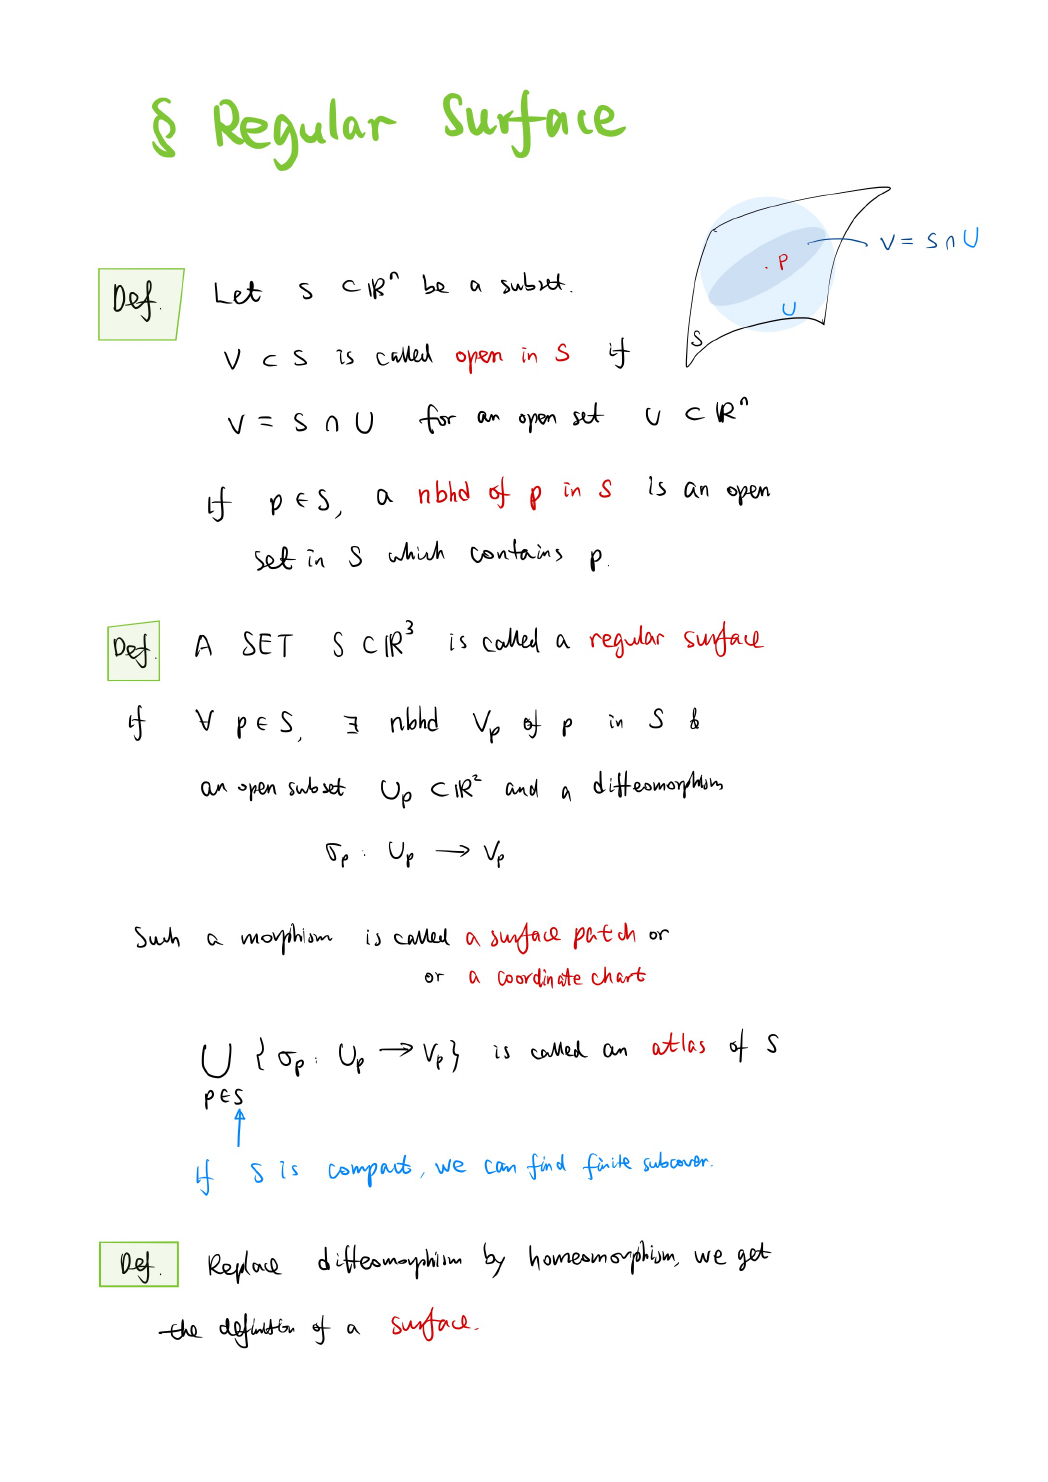 § Regular Surface
V = S ∩ U
p
U
S
Def. Let S ⊂ ℝⁿ be a subset.
V ⊂ S is called open in S if
V = S ∩ U for an open set U ⊂ ℝⁿ
If p ∈ S, a nbhd of p in S is an open
set in S which contains p.
Def. A SET S ⊂ ℝ³ is called a regular surface
if ∀ p ∈ S, ∃ nbhd Vₚ of p in S &
an open subset Uₚ ⊂ ℝ² and a diffeomorphism
σₚ : Uₚ → Vₚ
Such a morphism is called a surface patch or
or a coordinate chart
⋃ {σₚ : Uₚ → Vₚ} is called an atlas of S
p∈S
If S is compact, we can find finite subcover.
Def. Replace diffeomorphism by homeomorphism, we get
the definition of a surface.